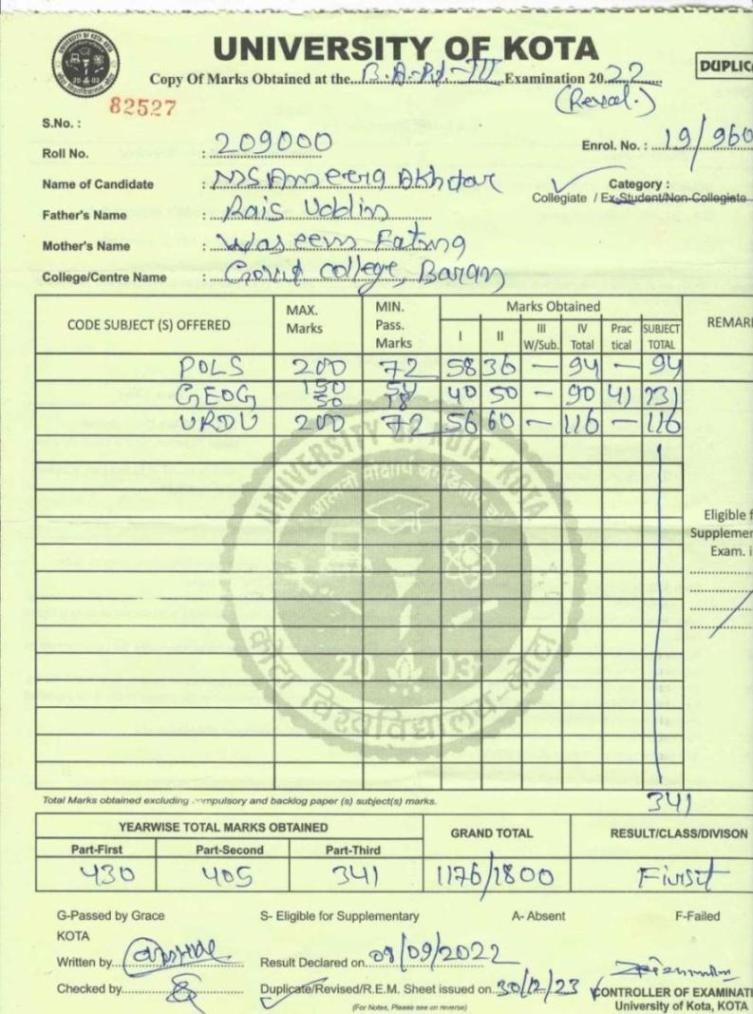 UNIVERSITY OF KOTA
DUPLIC
Copy Of Marks Obtained at the B.A. Pt-III Examination 2022
(Reval.)
82527
S.No. :
Roll No. : 209000
Enrol. No. : 19/960
Name of Candidate : MS Ameena Akhtar
Category :
Collegiate / Ex-Student/Non-Collegiate
Father's Name : Rais Uddin
Mother's Name : Waseem Fatma
College/Centre Name : Govt college, Baran
CODE SUBJECT (S) OFFERED MAX. Marks MIN. Pass. Marks Marks Obtained REMAR
I II III W/Sub. IV Total Prac tical SUBJECT TOTAL
POLS 200 72 58 36 — 94 — 94
GEOG 150 50 54 18 40 50 — 90 41 131
URDU 200 72 56 60 — 116 — 116
UNIVERSITY OF KOTA-KOTA
2003
कोटा विश्वविद्यालय-कोटा
Eligible f
Supplemen
Exam. i
Total Marks obtained excluding compulsory and backlog paper (s) subject(s) marks.
341
YEARWISE TOTAL MARKS OBTAINED GRAND TOTAL RESULT/CLASS/DIVISON
Part-First Part-Second Part-Third
430 405 341 1176/1800 First
G-Passed by Grace S- Eligible for Supplementary A- Absent F-Failed
KOTA
Written by Result Declared on 09/09/2022
Checked by Duplicate/Revised/R.E.M. Sheet issued on 30/12/23 CONTROLLER OF EXAMINATI
(For Notes, Please see on reverse) University of Kota, KOTA